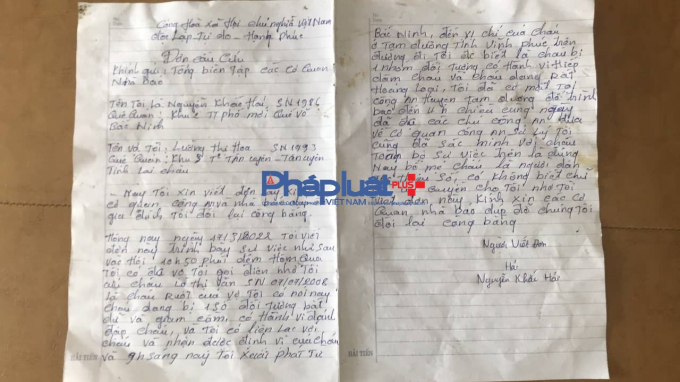 Cộng Hoà Xã Hội Chủ nghĩa Việt Nam
độc Lập Tự do - Hạnh Phúc
Đơn cầu Cứu
Kính gửi: Tổng biên Tập các Cơ Quan
Nhà Báo
Tên Tôi là Nguyễn Khắc Hải, SN 1986
Quê Quán: Khu 2 TT phố mới Quế Võ
Bắc Ninh
Tên Vợ Tôi, Lương Thị SN 1993
Quê Quán: Khu 8 TT Tân uyên - Tân uyên
Tỉnh Lai châu
- Nay Tôi Xin Viết đơn này
cơ quan, công an và nhà báo
gia đình Tôi đòi lại công bằng
Hôm nay ngày 19/3/2022 Tôi viết
đơn này trình bày Sự việc như Sau
Vào Hồi 10h50 phút đêm Hôm Qua
Tôi có chị Vợ Tôi gọi điện nhờ Tôi
cứu cháu Lò thị Vân SN 07/07/2008
là cháu Ruột của Vợ Tôi có nói nay
cháu đang bị 1 Số đối Tượng bắt
dữ và giam cầm, có Hành Vi đánh
đập cháu, và Tôi có liên Lạc Với
cháu và nhận được định vị của cháu
và 9h sáng nay Tôi Xuất Phát Từ
Bắc Ninh, đến Vị chí của cháu
ở Tam dương Tỉnh Vĩnh Phúc trên
đường đi Tôi được biết là cháu bị
1 nhóm đối Tượng có Hành Vi Hiếp
dâm cháu và cháu đang Rất
Hoảng Loạn, Tôi đã có mặt Tại
công an Huyện Tam dương để trình
báo đến 4h chiều cùng ngày
đã các chú công an đưa
về Cơ quan công an Sử Lý Tôi
cũng đã Sác minh Với cháu
Toàn bộ Sự việc trên là đúng
Nay bố mẹ cháu là người dân
Số, có không biết chữ
quyền cho Tôi nhờ Tôi
Viết đơn, này, Kính Xin các Cơ
Quan, nhà báo giúp đỡ chúng Tôi
đòi lại công bằng
Người Viết đơn
Hải
Nguyễn Khắc Hải
Phápluật PLUS
VIỆT NAM
HẢI TIẾN
HẢI TIẾN